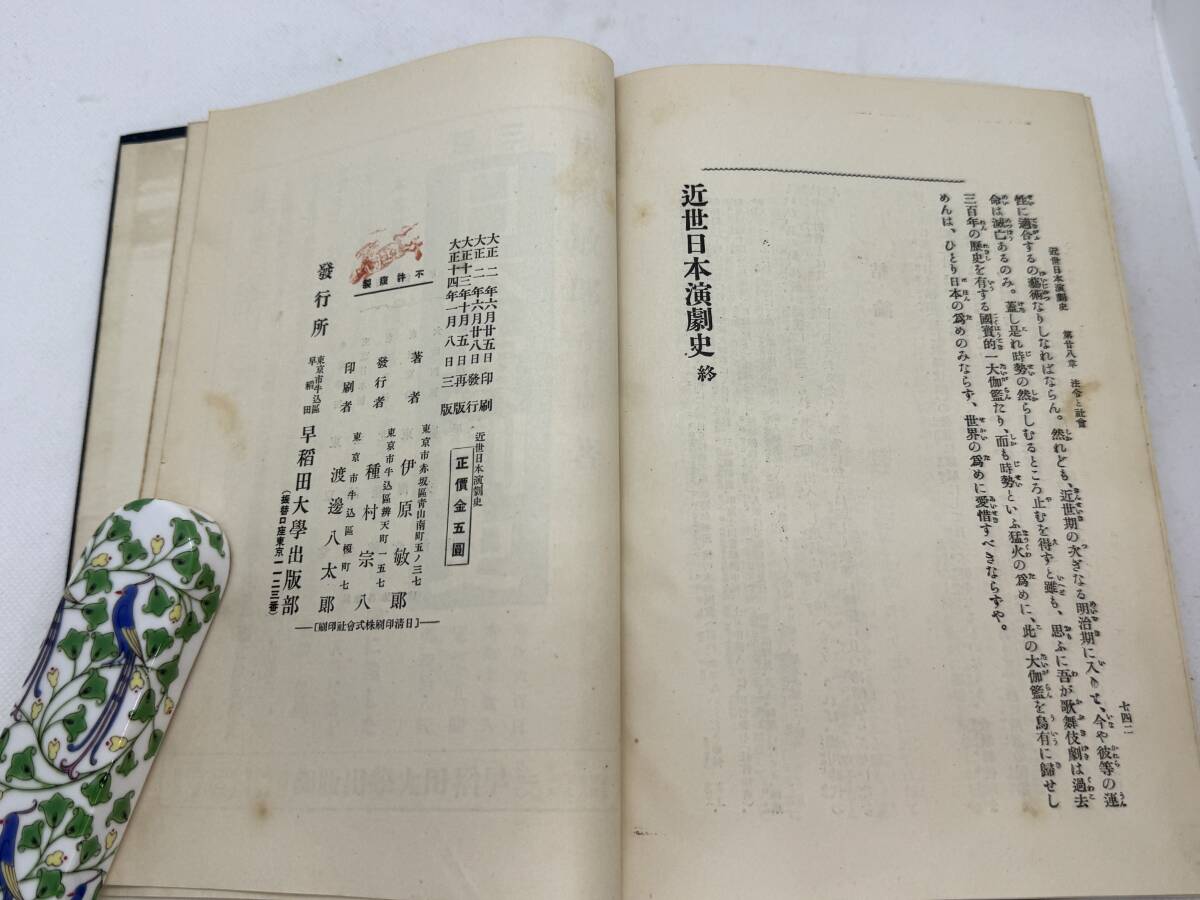 近世日本演劇史　第廿八章　法令と社會
七四二
性に適合するの藝術なりしなればならん。然れども、近世期の次ぎなる明治期に入りて、今や彼等の運
命は滅亡あるのみ。蓋し是れ時勢の然らしむるところ止むを得ずと雖も、思ふに吾が歌舞伎劇は過去
三百年の歷史を有する國寶的一大伽籃たり、而も時勢といふ猛火の爲めに、此の大伽籃を烏有に歸せし
めんは、ひとり日本の爲めのみならず、世界の爲めに愛惜すべきならずや。
近世日本演劇史 終
大正二年六月廿五日印刷
大正二年六月廿八日發行
大正十三年十月五日再版
大正十四年一月八日三版
近世日本演劇史
正價金五圓
不許複製
著者
東京市赤坂區青山南町五ノ三七
伊原敏郎
發行者
東京市牛込區辨天町一五七
種村宗八
印刷者
東京市牛込區榎町七
渡邊八太郎
發行所
東京市牛込區
早稻田
早稻田大學出版部
(振替口座東京一一二三番)
[日清印刷株式會社印刷]